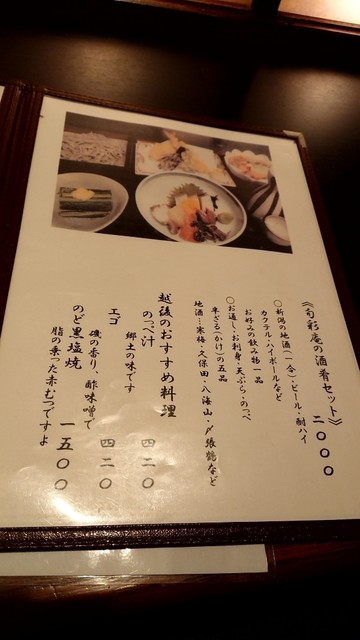 《旬彩庵の酒肴セット》 二〇〇〇
○新潟の地酒(一合)・ビール・酎ハイ
カクテル・ハイボールなど
お好みの飲み物一品
○お通し・お刺身・天ぷら・のっぺ
半ざる(かけ)の五品
地酒:寒梅・久保田・八海山・〆張鶴など
越後のおすすめ料理
のっぺ汁 四二〇
郷土の味です
エゴ 四二〇
磯の香り、酢味噌で
のど黒塩焼 一五〇〇
脂の乗った赤むつですよ